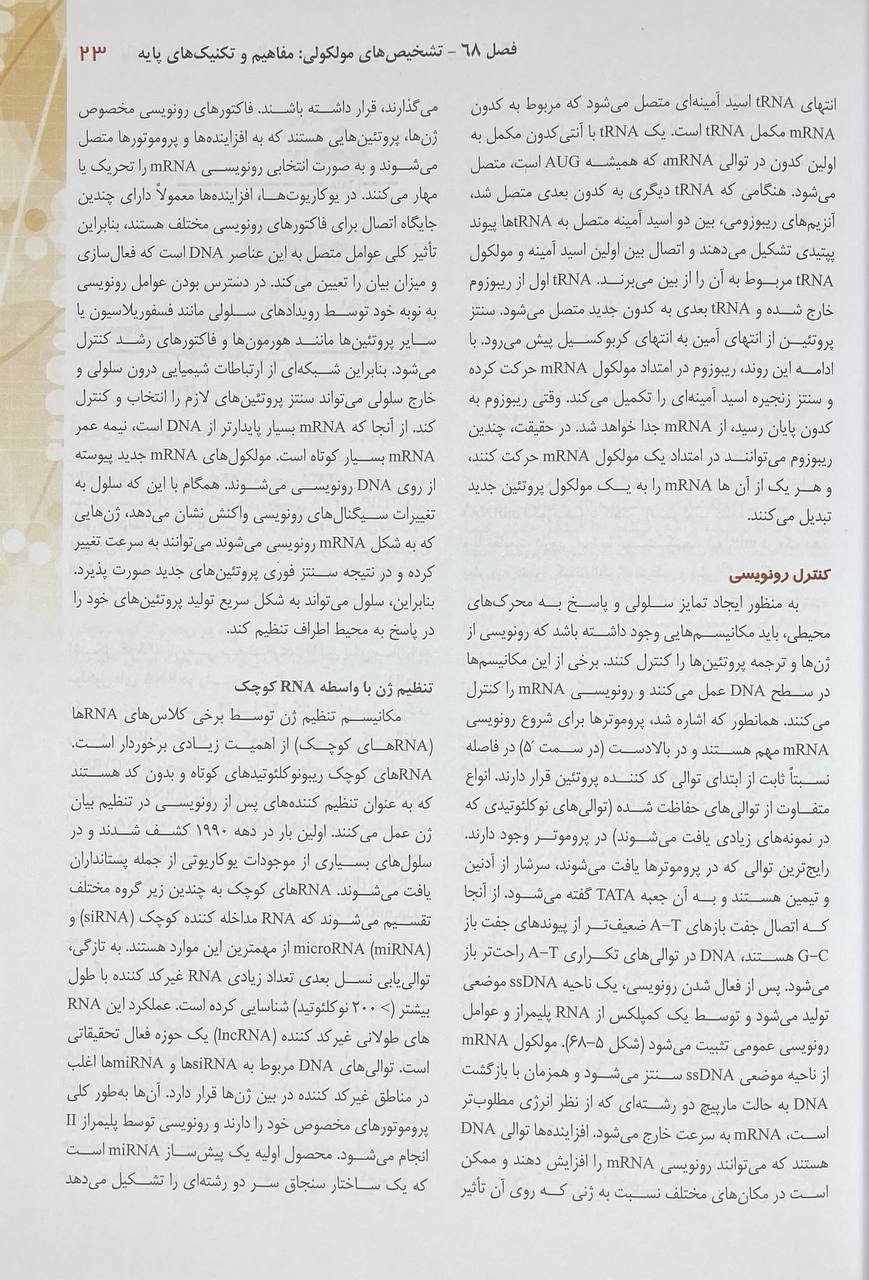 فصل ۶۸ - تشخیص‌های مولکولی: مفاهیم و تکنیک‌های پایه ۲۳
انتهای tRNA اسید آمینه‌ای متصل می‌شود که مربوط به کدون
mRNA مکمل tRNA است. یک tRNA با آنتی‌کدون مکمل به
اولین کدون در توالی mRNA، که همیشه AUG است، متصل
می‌شود. هنگامی که tRNA دیگری به کدون بعدی متصل شد،
آنزیم‌های ریبوزومی، بین دو اسید آمینه متصل به tRNAها پیوند
پپتیدی تشکیل می‌دهند و اتصال بین اولین اسید آمینه و مولکول
tRNA مربوط به آن را از بین می‌برند. tRNA اول از ریبوزوم
خارج شده و tRNA بعدی به کدون جدید متصل می‌شود. سنتز
پروتئین از انتهای آمین به انتهای کربوکسیل پیش می‌رود. با
ادامه این روند، ریبوزوم در امتداد مولکول mRNA حرکت کرده
و سنتز زنجیره اسید آمینه‌ای را تکمیل می‌کند. وقتی ریبوزوم به
کدون پایان رسید، از mRNA جدا خواهد شد. در حقیقت، چندین
ریبوزوم می‌توانند در امتداد یک مولکول mRNA حرکت کنند،
و هر یک از آن ها mRNA را به یک مولکول پروتئین جدید
تبدیل می‌کنند.
کنترل رونویسی
به منظور ایجاد تمایز سلولی و پاسخ به محرک‌های
محیطی، باید مکانیسم‌هایی وجود داشته باشد که رونویسی از
ژن‌ها و ترجمه پروتئین‌ها را کنترل کنند. برخی از این مکانیسم‌ها
در سطح DNA عمل می‌کنند و رونویسی mRNA را کنترل
می‌کنند. همانطور که اشاره شد، پروموترها برای شروع رونویسی
mRNA مهم هستند و در بالادست (در سمت ۵′) در فاصله
نسبتاً ثابت از ابتدای توالی کد کننده پروتئین قرار دارند. انواع
متفاوت از توالی‌های حفاظت شده (توالی‌های نوکلئوتیدی که
در نمونه‌های زیادی یافت می‌شوند) در پروموتر وجود دارند.
رایج‌ترین توالی که در پروموترها یافت می‌شوند، سرشار از آدنین
و تیمین هستند و به آن جعبه TATA گفته می‌شود. از آنجا
که اتصال جفت بازهای A-T ضعیف‌تر از پیوندهای جفت باز
G-C هستند، DNA در توالی‌های تکراری A-T راحت‌تر باز
می‌شود. پس از فعال شدن رونویسی، یک ناحیه ssDNA موضعی
تولید می‌شود و توسط یک کمپلکس از RNA پلیمراز و عوامل
رونویسی عمومی تثبیت می‌شود (شکل ۵-۶۸). مولکول mRNA
از ناحیه موضعی ssDNA سنتز می‌شود و همزمان با بازگشت
DNA به حالت مارپیچ دو رشته‌ای که از نظر انرژی مطلوب‌تر
است، mRNA به سرعت خارج می‌شود. افزاینده‌ها توالی DNA
هستند که می‌توانند رونویسی mRNA را افزایش دهند و ممکن
است در مکان‌های مختلف نسبت به ژنی که روی آن تأثیر
می‌گذارند، قرار داشته باشند. فاکتورهای رونویسی مخصوص
ژن‌ها، پروتئین‌هایی هستند که به افزاینده‌ها و پروموتورها متصل
می‌شوند و به صورت انتخابی رونویسی mRNA را تحریک یا
مهار می‌کنند. در یوکاریوت‌ها، افزاینده‌ها معمولاً دارای چندین
جایگاه اتصال برای فاکتورهای رونویسی مختلف هستند، بنابراین
تأثیر کلی عوامل متصل به این عناصر DNA است که فعال‌سازی
و میزان بیان را تعیین می‌کند. در دسترس بودن عوامل رونویسی
به نوبه خود توسط رویدادهای سلولی مانند فسفوریلاسیون یا
سایر پروتئین‌ها مانند هورمون‌ها و فاکتورهای رشد کنترل
می‌شود. بنابراین شبکه‌ای از ارتباطات شیمیایی درون سلولی و
خارج سلولی می‌تواند سنتز پروتئین‌های لازم را انتخاب و کنترل
کند. از آنجا که mRNA بسیار پایدارتر از DNA است، نیمه عمر
mRNA بسیار کوتاه است. مولکول‌های mRNA جدید پیوسته
از روی DNA رونویسی می‌شوند. همگام با این که سلول به
تغییرات سیگنال‌های رونویسی واکنش نشان می‌دهد، ژن‌هایی
که به شکل mRNA رونویسی می‌شوند می‌توانند به سرعت تغییر
کرده و در نتیجه سنتز فوری پروتئین‌های جدید صورت پذیرد.
بنابراین، سلول می‌تواند به شکل سریع تولید پروتئین‌های خود را
در پاسخ به محیط اطراف تنظیم کند.
تنظیم ژن با واسطه RNA کوچک
مکانیسم تنظیم ژن توسط برخی کلاس‌های RNAها
(RNAهای کوچک) از اهمیت زیادی برخوردار است.
RNAهای کوچک ریبونوکلئوتیدهای کوتاه و بدون کد هستند
که به عنوان تنظیم کننده‌های پس از رونویسی در تنظیم بیان
ژن عمل می‌کنند. اولین بار در دهه ۱۹۹۰ کشف شدند و در
سلول‌های بسیاری از موجودات یوکاریوتی از جمله پستانداران
یافت می‌شوند. RNAهای کوچک به چندین زیر گروه مختلف
تقسیم می‌شوند که RNA مداخله کننده کوچک (siRNA) و
microRNA (miRNA) از مهمترین این موارد هستند. به تازگی،
توالی‌یابی نسل بعدی تعداد زیادی RNA غیرکد کننده با طول
بیشتر (> ۲۰۰ نوکلئوتید) شناسایی کرده است. عملکرد این RNA
های طولانی غیرکد کننده (lncRNA) یک حوزه فعال تحقیقاتی
است. توالی‌های DNA مربوط به siRNAها و miRNAها اغلب
در مناطق غیرکد کننده در بین ژن‌ها قرار دارد. آن‌ها به‌طور کلی
پروموتورهای مخصوص خود را دارند و رونویسی توسط پلیمراز II
انجام می‌شود. محصول اولیه یک پیش‌ساز miRNA است
که یک ساختار سنجاق سر دو رشته‌ای را تشکیل می‌دهد